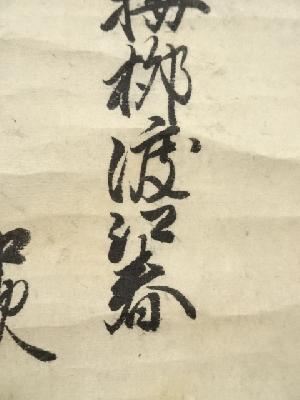 梅柳渡江春